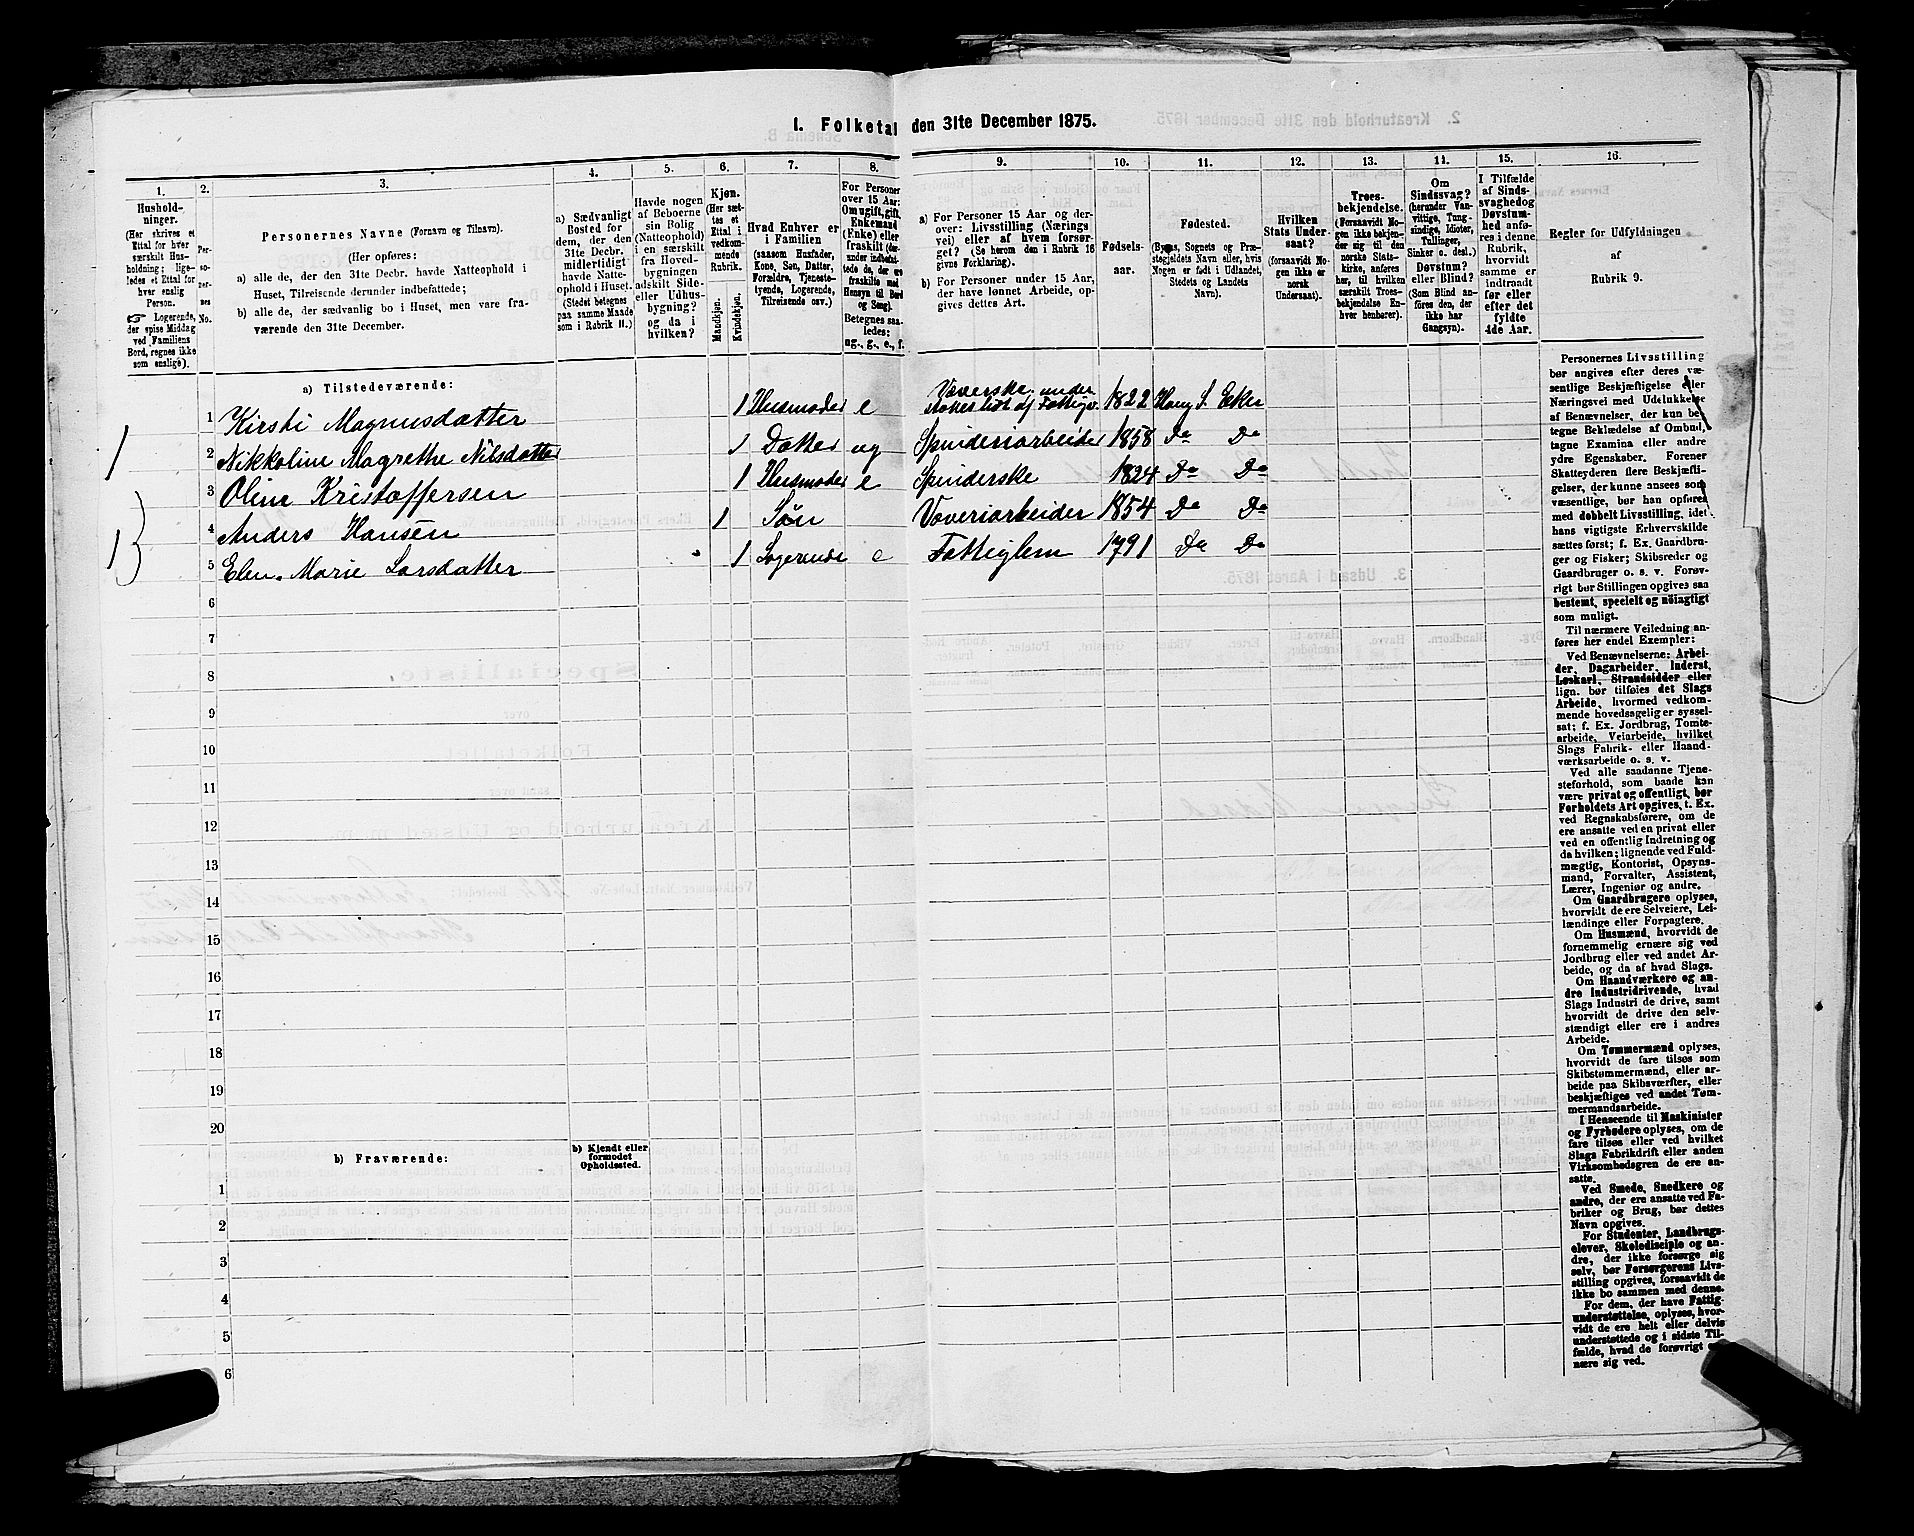 I. Folketal den 31te December 1875.
1.
Hushold-
ninger.
(Her skrives et
Ettal for hver
særskilt Hus-
holdning; lige-
ledes et Ettal for
hver enslig
Person.
☞ Logerende,
der spise Middag
ved Familiens
Bord, regnes ikke
som enslige).
2.
Per-
so-
ner-
nes
No.
3.
Personernes Navne (Fornavn og Tilnavn).
(Her opføres:
a) alle de, der den 31te Decbr. havde Natteophold i
Huset, Tilreisende derunder indbefattede;
b) alle de, der sædvanlig bo i Huset, men vare fra-
værende den 31te December.
4.
a) Sædvanligt
Bosted for
dem, der den
31te Decbr.
midlertidigt
havde Natte-
ophold i Huset.
(Stedet betegnes
paa samme Maade
som i Rubrik 11.)
5.
Havde nogen
af Beboerne
sin Bolig
(Natteophold)
i en særskilt
fra Hoved-
bygningen
adskilt Side-
eller Udhus-
bygning?
og da i
hvilken?
6.
Kjøn.
(Her sæt-
tes et
Ettal i
vedkom-
mende
Rubrik.
Mandkjøn.
Kvindekjøn.
7.
Hvad Enhver er
i Familien
(saasom Husfader,
Kone, Søn, Datter,
Forældre, Tjeneste-
tyende, Logerende,
Tilreisende osv.)
8.
For Personer
over 15 Aar:
Om ugift, gift,
Enkemand
(Enke) eller
fraskilt
Betegnes saa-
ledes:
ug., g., e., f.
9.
a) For Personer 15 Aar og der-
over: Livsstilling (Nærings
vei) eller af hvem forsør-
get? (Se herom den i Rubrik 16
givne Forklaring).
b) For Personer under 15 Aar,
der have lønnet Arbeide, op-
gives dettes Art.
10.
Fødsels-
aar.
11.
Fødested.
(Byens, Sognets og Præ-
stegjeldets Navn eller, hvis
Nogen er født i Udlandet,
Stedets og Landets
Navn).
12.
Hvilken
Stats Under-
saat?
(forsaavidt No-
gen ikke er
norsk
Undersaat).
13.
Troes-
bekjendelse.
(Forsaavidt No-
gen ikke bekjen-
der sig til den
norske Stats-
kirke, anføres
her, til hvilken
særskilt Troes-
bekjendelse En-
hver henhører).
14.
Om
Sindssvag?
(herunder Van-
vittige, Tung-
sindige, Idioter,
Tullinger,
Sinker o. desl.)
Døvstum?
eller Blind?
(Som Blind an-
føres den, der
ikke har
Gangsyn).
15.
I Tilfælde
af Sinds-
svaghed og
Døvstum-
hed anfø-
res i denne
Rubrik,
hvorvidt
samme er
indtraadt
før eller
efter det
fyldte
4de Aar.
16.
Regler for Udfyldningen
af
Rubrik 9.
a) Tilstedeværende:
1 Kirsti Magnusdatter 1 Husmoder e Væverske, under-støttes lidt af Fattigv. 1822 Haug S. Eker
1
2 Nikkoline Magrethe Nilsdatter 1 Datter ug Spinderiarbeider 1858 Do Do
3 Oline Kristoffersen 1 Husmoder e Spinderske 1824 Do Do
4 Anders Hansen 1 Søn Væveriarbeider 1854 Do Do
1
5 Elen Marie Larsdatter 1 Logerende e Fattiglem 1791 Do Do
6
7
8
9
10
11
12
13
14
15
16
17
18
19
20
b) Fraværende:
b) Kjendt eller
formodet
Opholdssted.
1
2
3
4
5
6
Personernes Livsstilling
bør angives efter deres væ-
sentlige Beskjæftigelse eller
Næringsvei med Udelukkelse
af Benævnelser, der kun be-
tegne Beklædelse af Ombud,
tagne Examina eller andre
ydre Egenskaber. Forener
Skatteyderen flere Beskjæfti-
gelser, der kunne ansees som
væsentlige, bør han opføres
med dobbelt Livsstilling, idet
hans vigtigste Erhvervskilde
sættes først; f. Ex. Gaardbru-
ger og Fisker; Skibsreder og
Gaardbruger o. s. v. Forøv-
rigt bør Stillingen opgives saa
bestemt, specielt og nøiagtigt
som muligt.
Til nærmere Veiledning an-
føres her endel Exempler:
Ved Benævnelserne: Arbei-
der, Dagarbeider, Inderst,
Løskarl, Strandsidder eller
lign. bør tilføies det Slags
Arbeide, hvormed vedkom-
mende hovedsagelig er syssel-
sat; f. Ex. Jordbrug, Tomte-
arbeide, Veiarbeide, hvilket
Slags Fabrik- eller Haand-
værksarbeide o. s. v.
Ved alle saadanne Tjene-
steforhold, som baade kan
være privat og offentligt, bør
Forholdets Art opgives, t. Ex.
ved Regnskabsførere, om de
ere ansatte ved en privat eller
ved en offentlig Indretning og
da hvilken; lignende ved Fuld-
mægtig, Kontorist, Opsyns-
mand, Forvalter, Assistent,
Lærer, Ingeniør og andre.
Om Gaardbrugere oplyses,
hvorvidt de ere Selveiere, Lei-
lændinge eller Forpagtere.
Om Husmænd, hvorvidt de
fornemmelig ernære sig ved
Jordbrug eller ved andet Ar-
beide, og da af hvad Slags.
Om Haandværkere og an-
dre Industridrivende, hvad
Slags Industri de drive, samt
hvorvidt de drive den selv-
stændigt eller ere i andres
Arbeide.
Om Tømmermænd oplyses,
hvorvidt de fare tilsøs som
Skibstømmermænd, eller ar-
beide paa Skibsværfter, eller
beskjæftiges ved andet Tøm-
mermandsarbeide.
I Henseende til Maskinister
og Fyrbødere oplyses, om de
fare tilsøs eller ved hvilket
Slags Fabrikdrift eller anden
Virksomhedsgren de ere an-
satte.
Ved Smede, Snedkere og
andre, der ere ansatte ved Fa-
briker og Brug, bør dettes
Navn opgives.
For Studenter, Landbrugs-
elever, Skoledisciple og an-
dre, der ikke forsørge sig
selv, bør Forsørgerens Livs-
stilling opgives, forsaavidt de
ikke bo sammen med denne.
For dem, der have Fattig-
understøttelse, oplyses, hvor-
vidt de ere helt eller delvis
understøttede og i sidste Til-
fælde, hvad de forøvrigt er-
nære sig ved.